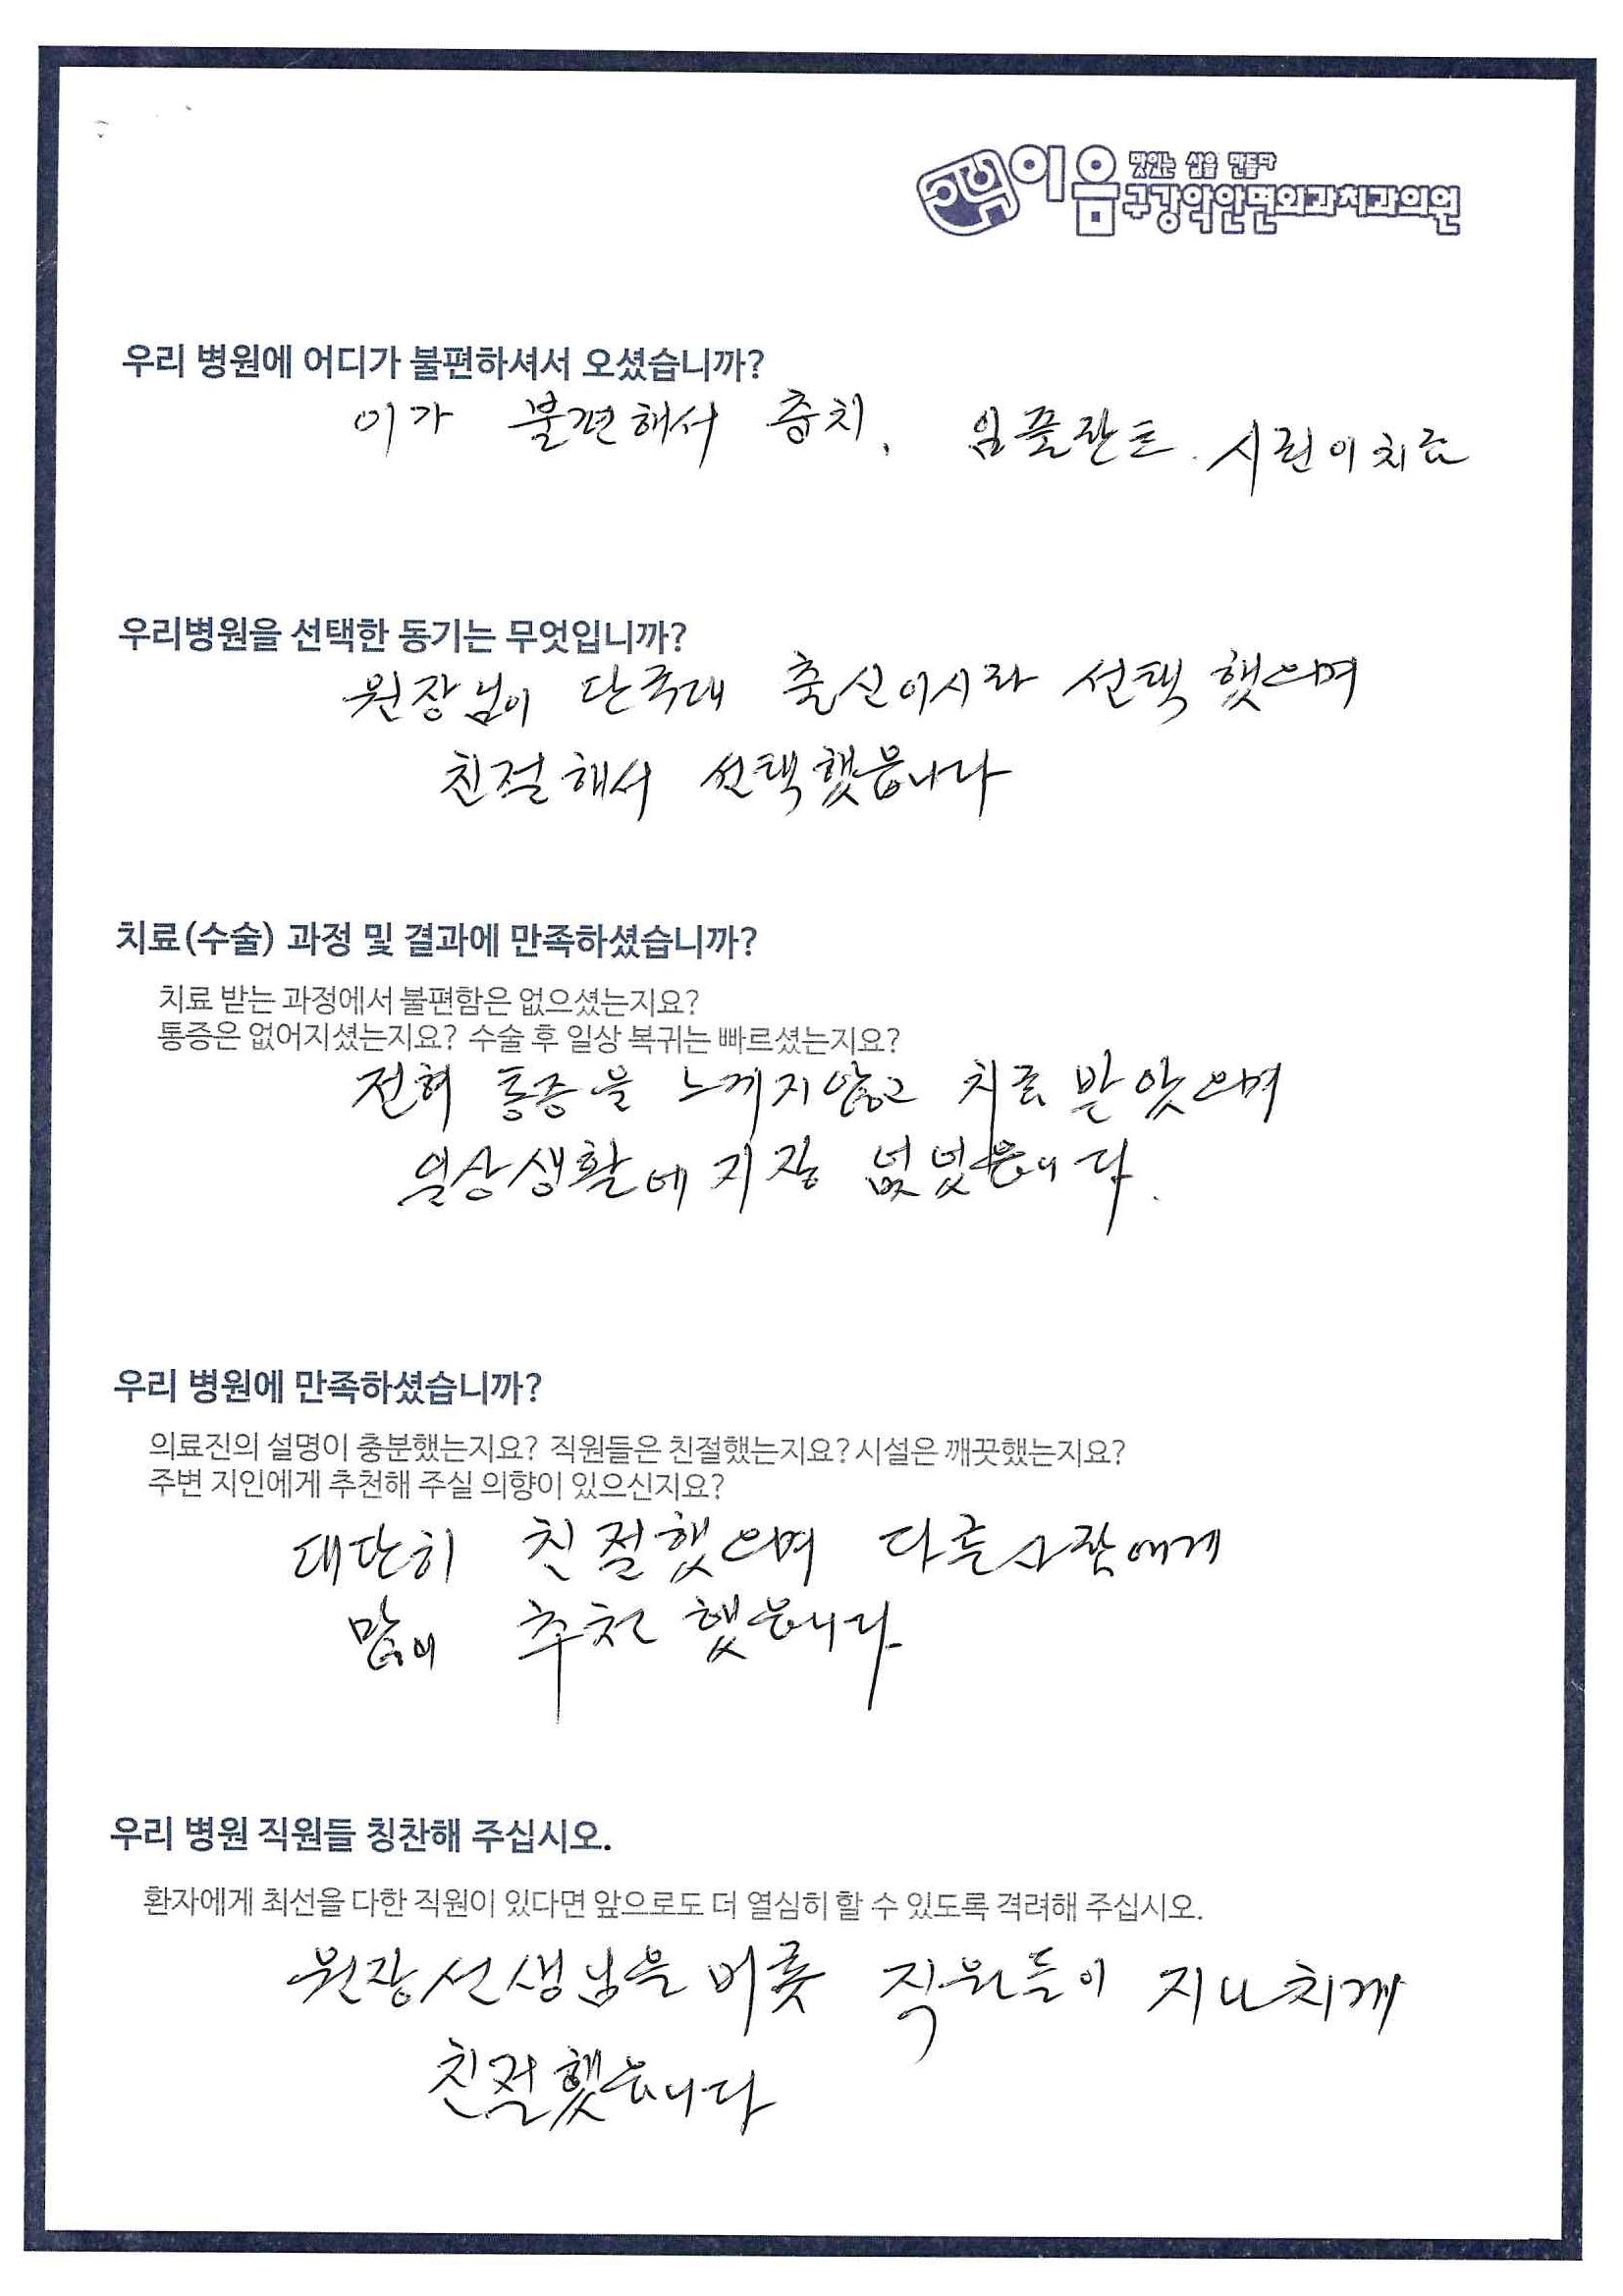 이음 맛있는 삶을 만들다
구강악안면외과치과의원
우리 병원에 어디가 불편하셔서 오셨습니까?
이가 불편해서 충치, 임플란트. 시린이치료
우리병원을 선택한 동기는 무엇입니까?
원장님이 단국대 출신이시라 선택했으며
친절해서 선택했읍니다
치료(수술) 과정 및 결과에 만족하셨습니까?
치료 받는 과정에서 불편함은 없으셨는지요?
통증은 없어지셨는지요? 수술 후 일상 복귀는 빠르셨는지요?
전혀 통증을 느께지않고 치료 받았으며
일상생활에 지장 없었읍니다.
우리 병원에 만족하셨습니까?
의료진의 설명이 충분했는지요? 직원들은 친절했는지요? 시설은 깨끗했는지요?
주변 지인에게 추천해 주실 의향이 있으신지요?
대단히 친절했으며 다른사람에게
많이 추천 했읍니다
우리 병원 직원들 칭찬해 주십시오.
환자에게 최선을 다한 직원이 있다면 앞으로도 더 열심히 할 수 있도록 격려해 주십시오.
원장선생님을 비롯 직원들이 지나치게
친절했읍니다